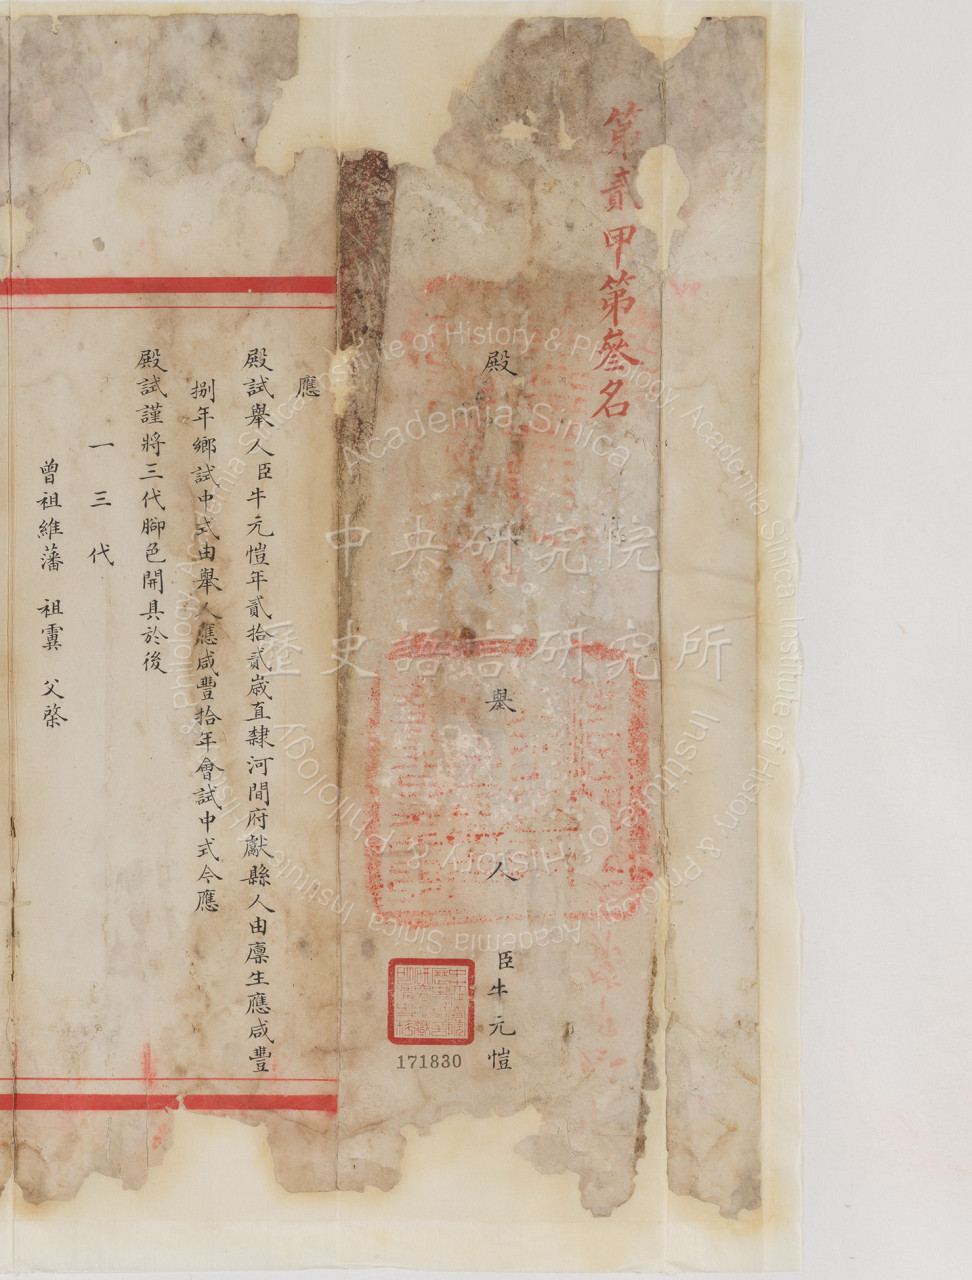 第貳甲第叄名
殿
舉
人
臣牛元愷
171830
應
殿試舉人臣牛元愷年貳拾貳歲直隸河間府獻縣人由廩生應咸豐
捌年鄉試中式由舉人應咸豐拾年會試中式今應
殿試謹將三代腳色開具於後
一三代
曾祖維藩 祖霣 父棨
中央研究院
歷史語言研究所
Institute of History & Philology, Academia Sinica